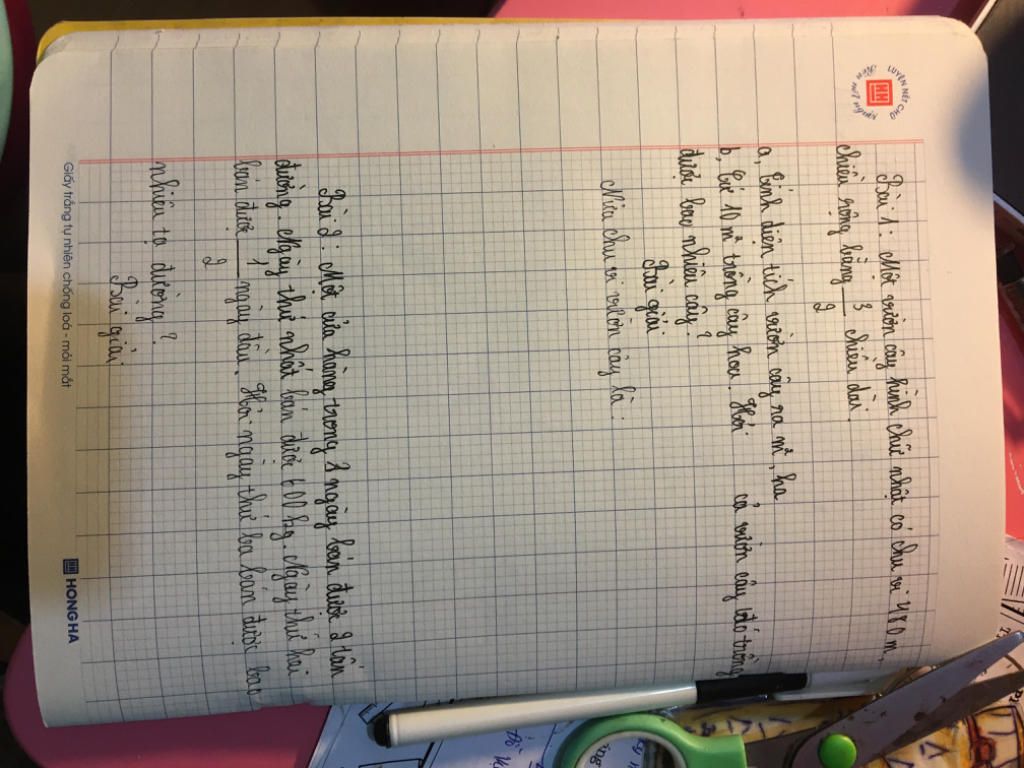 LUYỆN NÉT CHỮ
Bài 1: Một vườn cây hình chữ nhật có chu vi 480m,
chiều rộng bằng 3/2 chiều dài.
a, Tính diện tích vườn cây ra m², ha
b, Cứ 10 m² trồng cây hoa. Hỏi cả vườn cây đó trồng
được bao nhiêu cây?
Bài giải
Nửa chu vi vườn cây là:
Bài 2: Một cửa hàng trong 3 ngày bán được 2 tấn
đường. Ngày thứ nhất bán được 600 kg. Ngày thứ hai
bán được 1/2 ngày đầu. Hỏi ngày thứ ba bán được bao
nhiêu tạ đường?
Bài giải
Giấy trắng tự nhiên chống loá - mỏi mắt
HONG HA